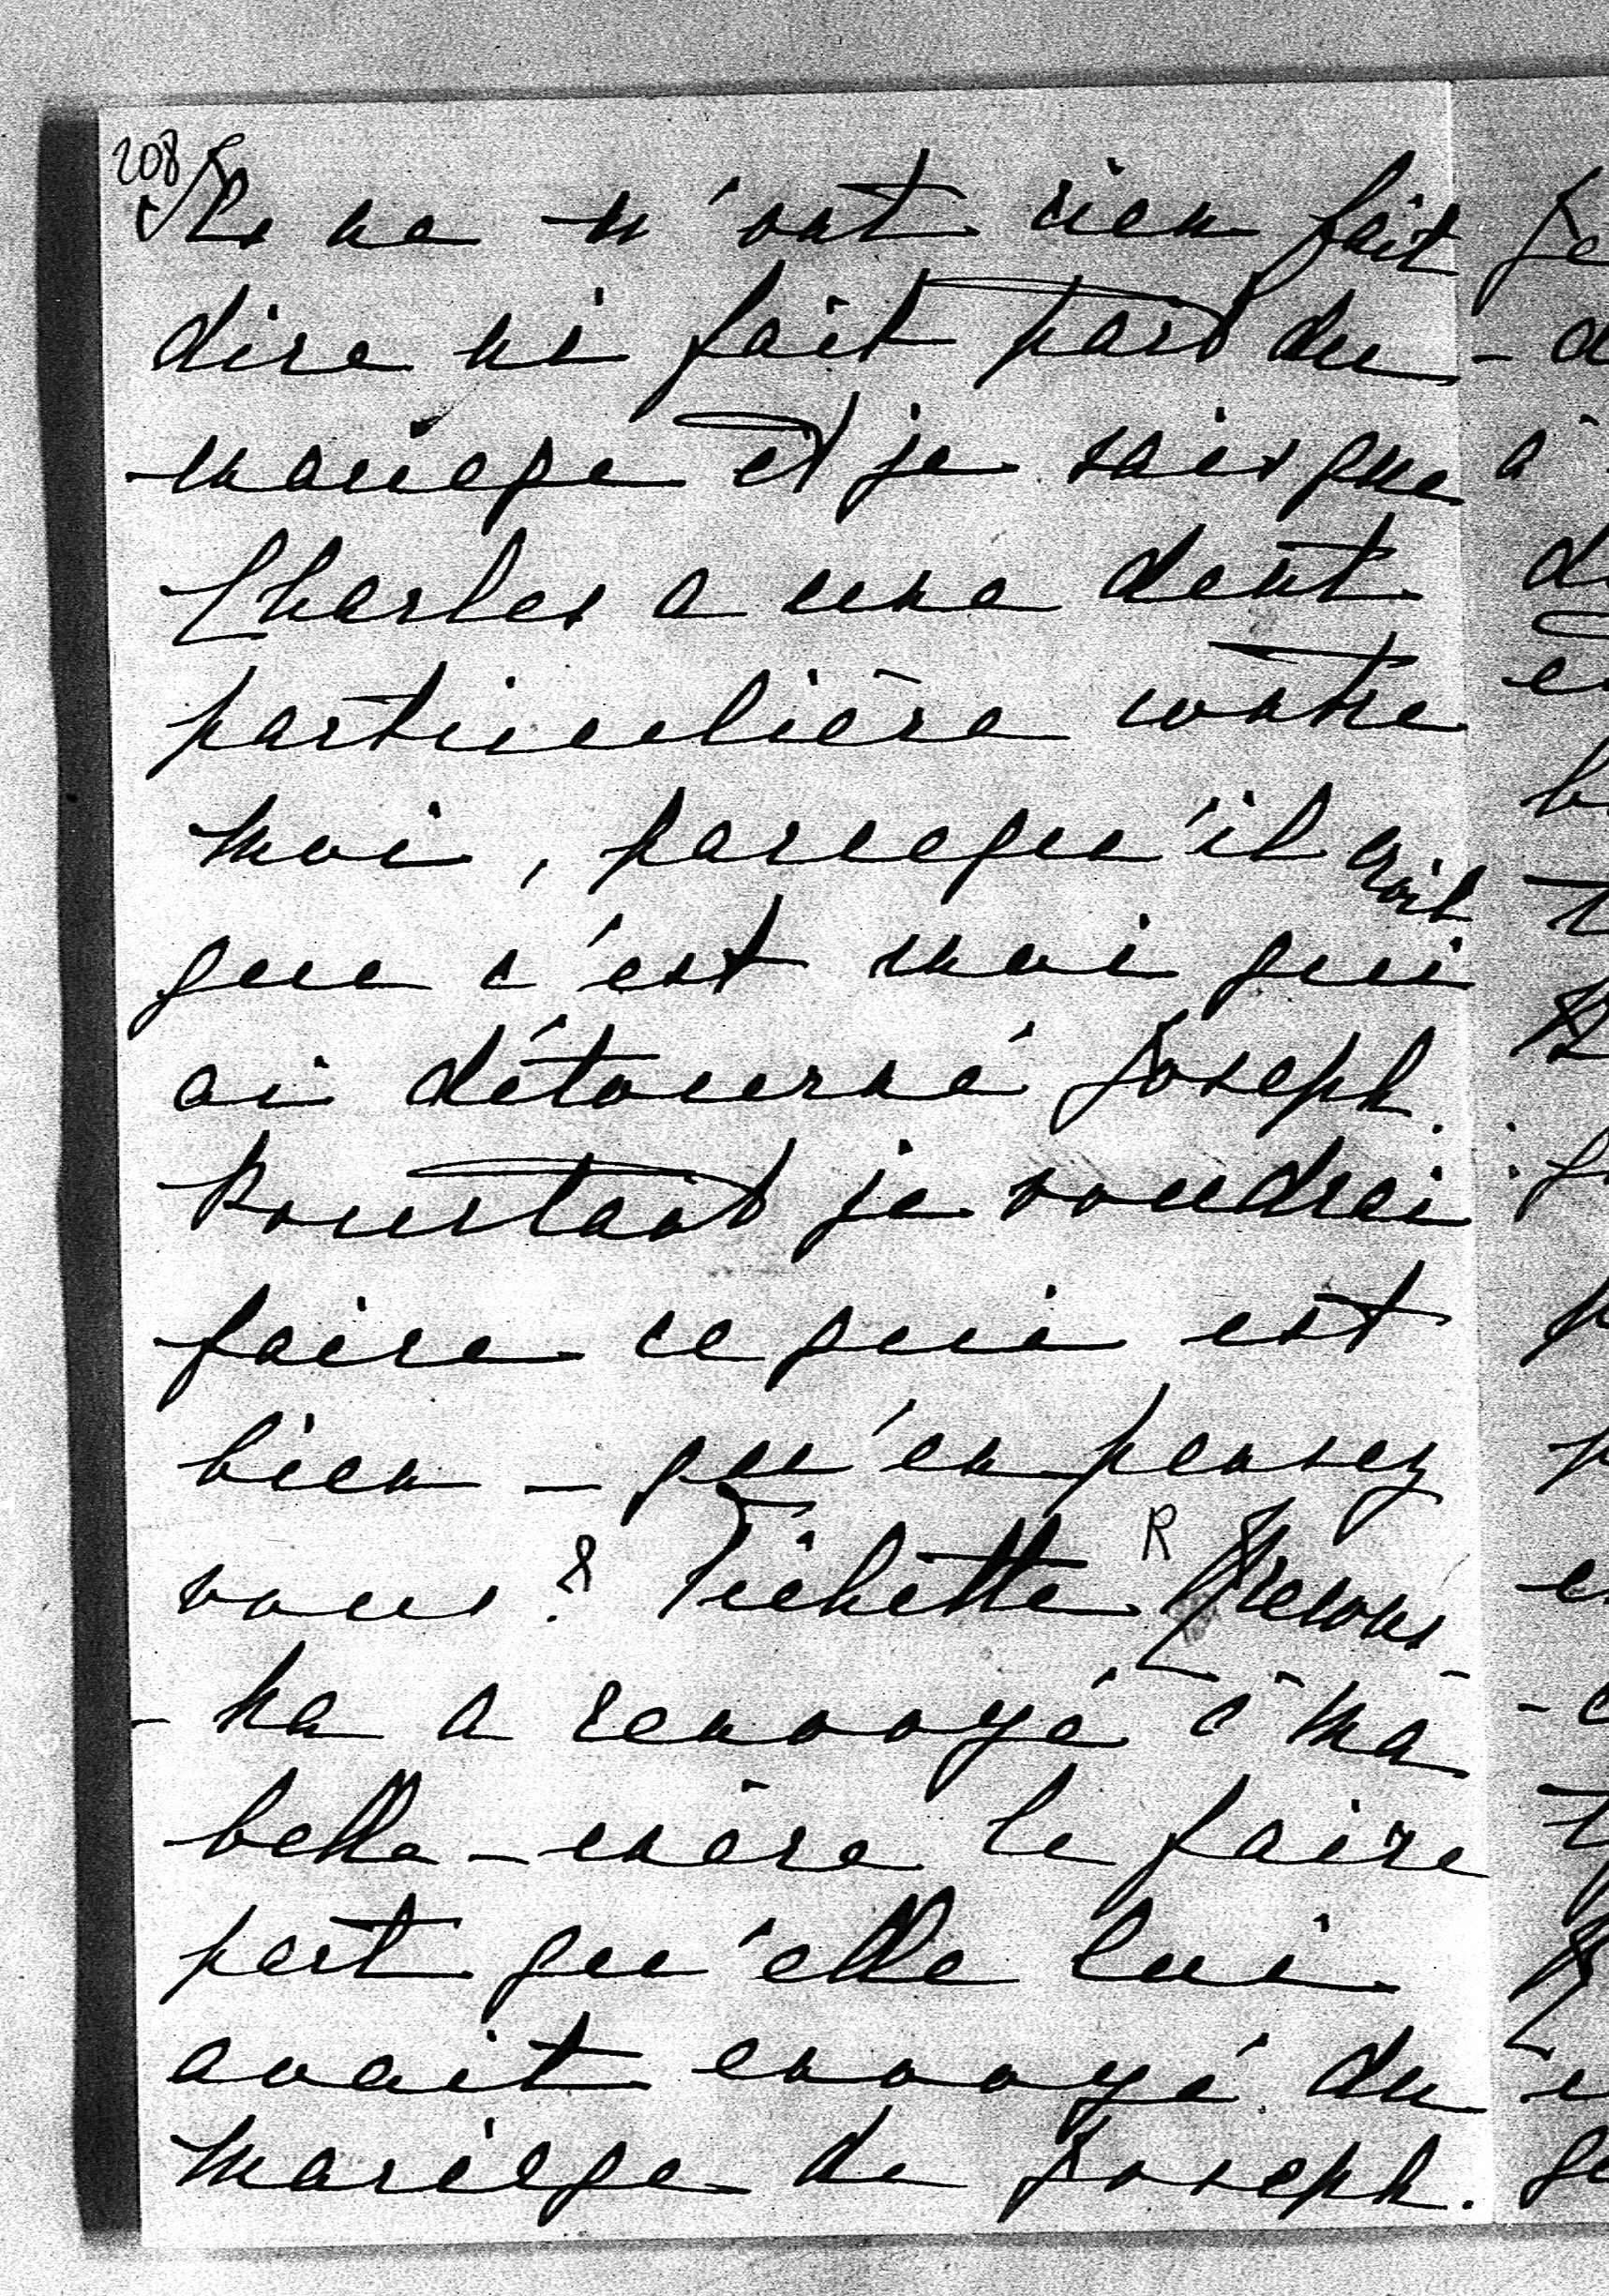 208
Ils ne m'ont rien fait
dire ni fait part du
mariage et je sais que
Charles a une dent
particulière contre
moi, parcequ'il croit
que c'est moi qui
ai détourné Joseph.
Pourtant je voudrai
faire ce qui est
bien – qu'en pensez
vous? R
- ka a renvoyé à ma
belle-mère le faire
part qu'elle lui
avait envoyé du
mariage de Joseph.